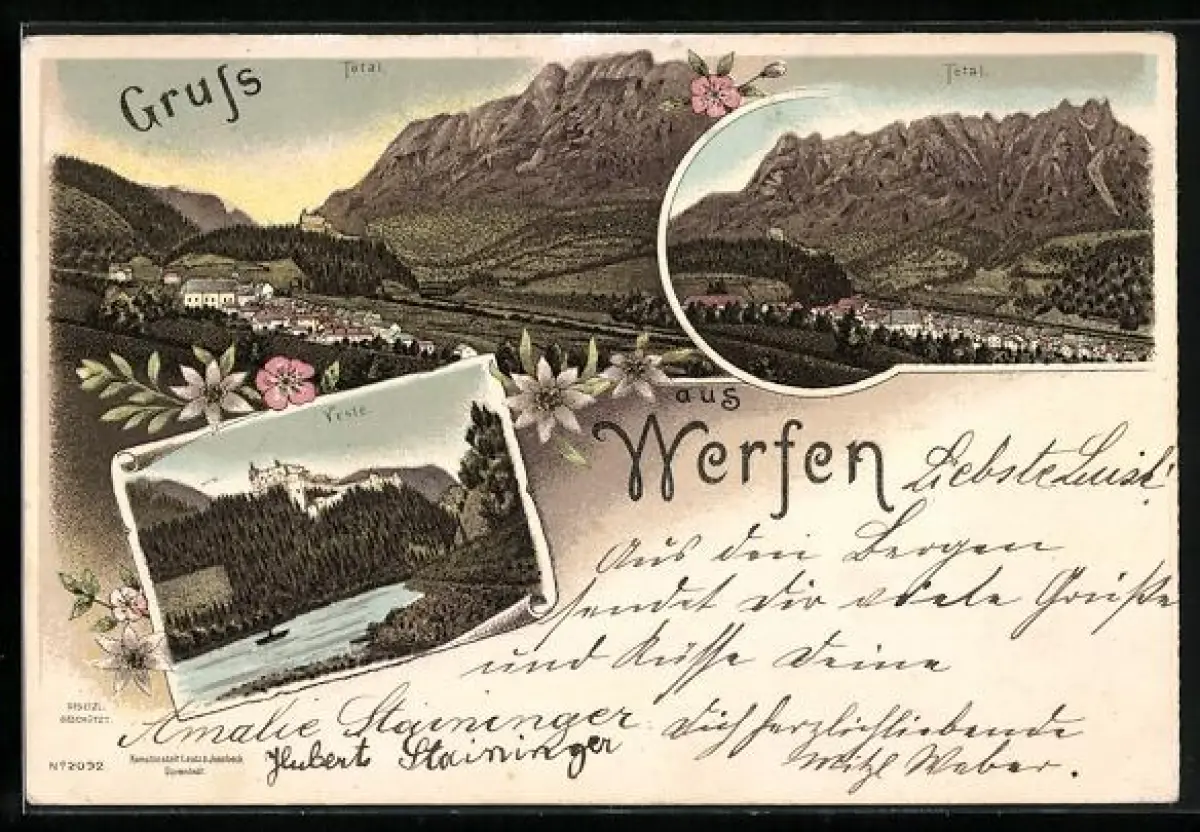 Gruſs
Total.
Total.
aus
Werfen
Veste.
Liebste Luisl!
Aus den Bergen
sendet dir viele Grüße
und Küsse deine
dich herzlichliebende
Mitzl Weber.
Amalie Staininger
Hubert Staininger
GESETZL.
GESCHÜTZT.
Nº 2092
Kunstanstalt